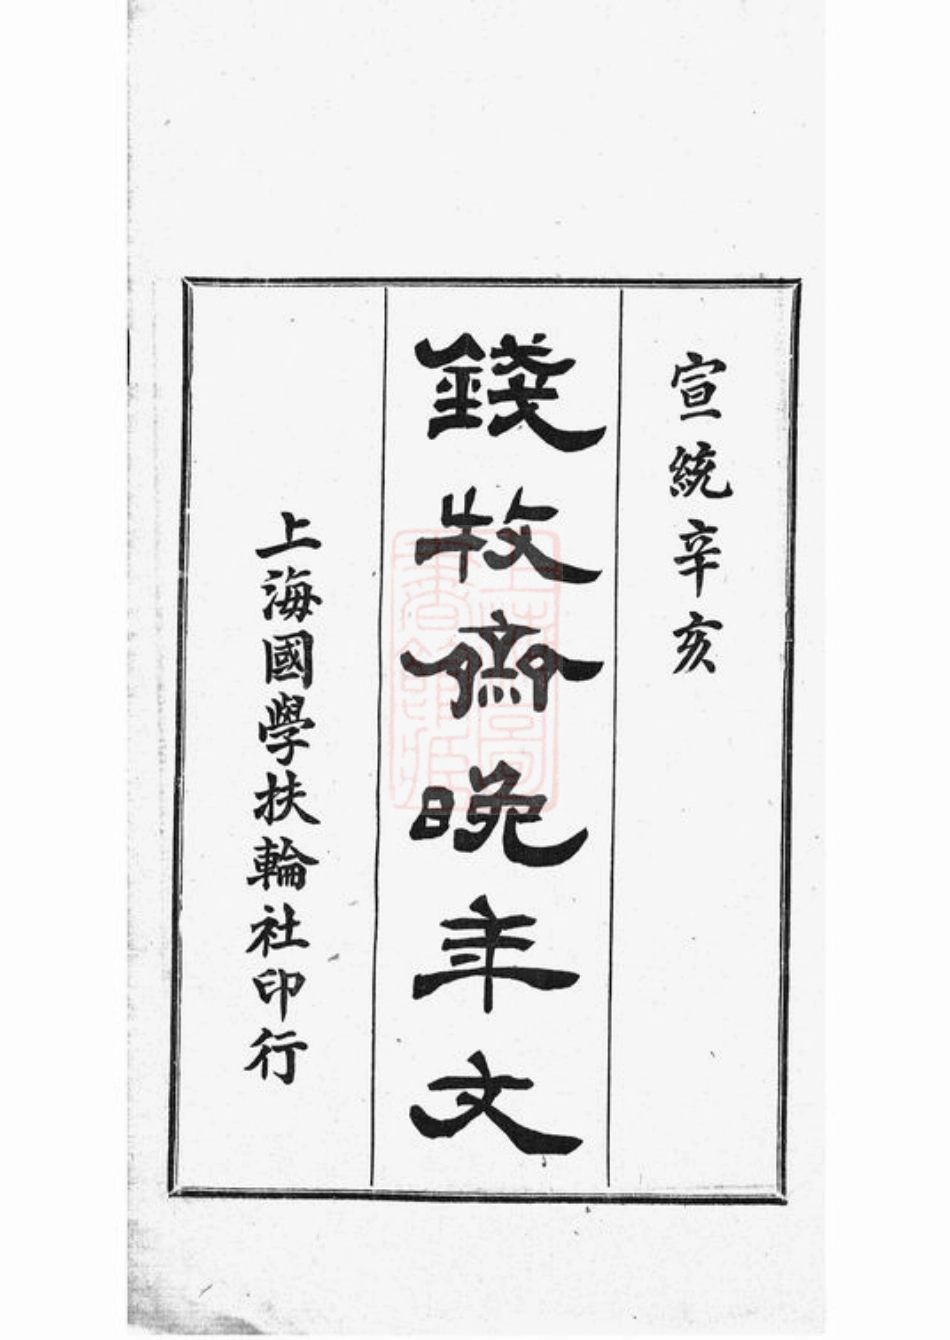 宣統辛亥
錢牧齋晚年文
上海國學扶輪社印行